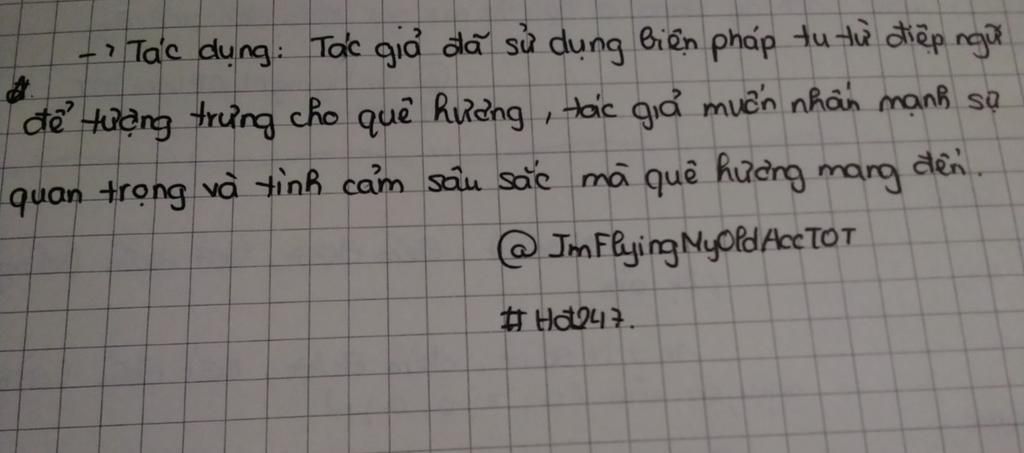 -> Tác dụng: Tác giả đã sử dụng biện pháp tu từ điệp ngữ
để tượng trưng cho quê hương, tác giả muốn nhấn mạnh sự
quan trọng và tình cảm sâu sắc mà quê hương mang đến.
@ImFlyingMyOldAccTOT
#Hd247.